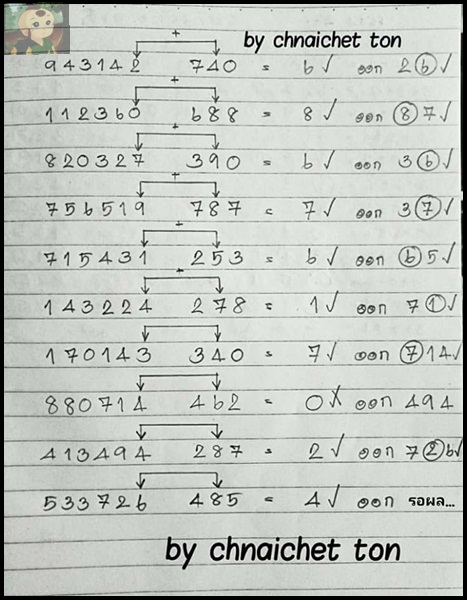 by chnaichet ton
+
943142 740 = 6✓ ออก 26✓
+
112360 688 = 8✓ ออก 87✓
+
820327 390 = 6✓ ออก 36✓
+
756519 787 = 7✓ ออก 37✓
+
715431 253 = 6✓ ออก 65✓
+
143224 278 = 1✓ ออก 71✓
170143 340 = 7✓ ออก 714✓
880714 462 = 0X ออก 494
413494 287 = 2✓ ออก 726✓
533726 485 = 4✓ ออก รอผล...
by chnaichet ton